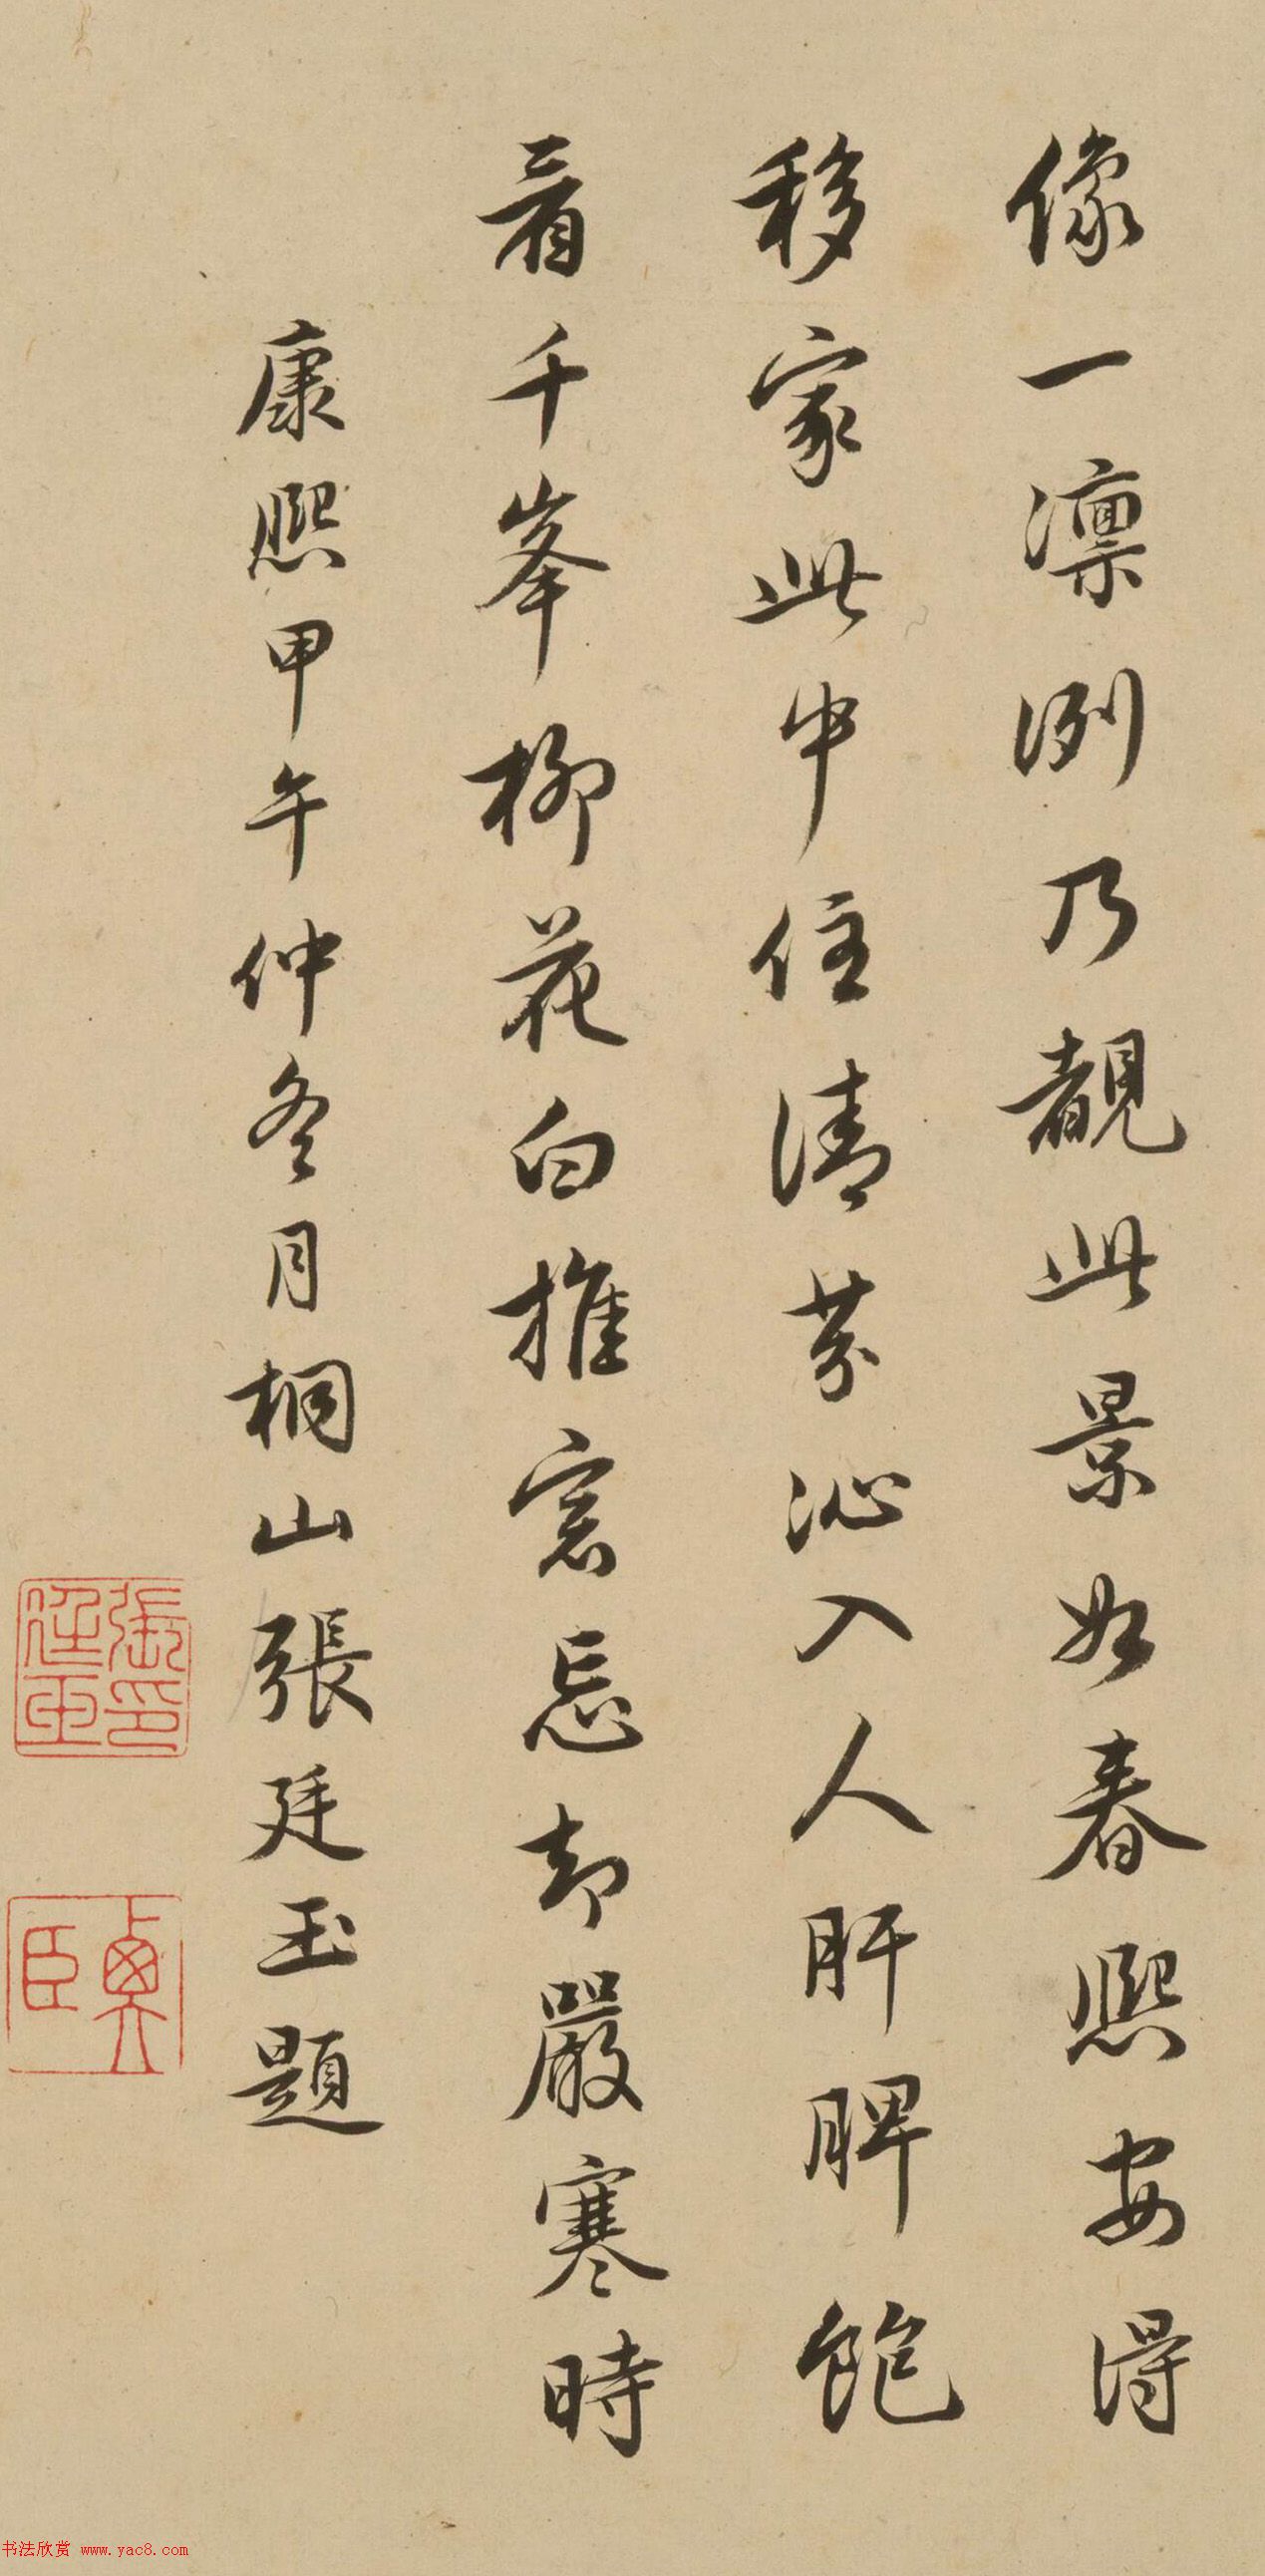 像一凛冽乃覩此景如春熙安得
移家此中住清芬沁入人肝脾飽
看千峯柳花白推窓忘却嚴寒時
康熙甲午仲冬月桐山張廷玉題
張廷玉印
衡臣
书法欣赏 www.yac8.com